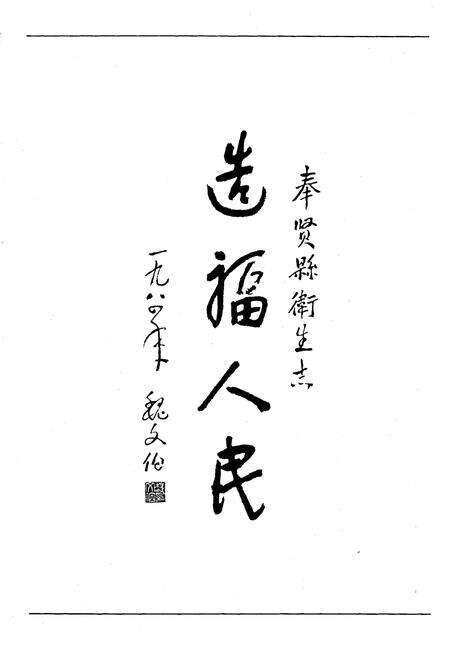 奉贤縣衛生志
造福人民
一九八四年
魏文伯